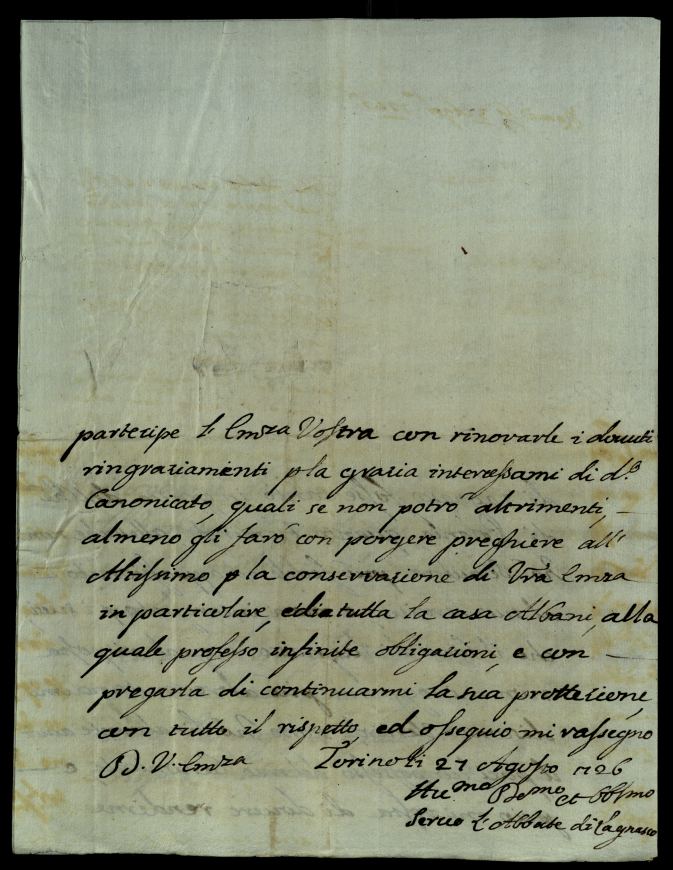 partecipe l'Emza Vostra con rinovarle i dovuti
ringraziamenti p la grazia intercessami di d.o
Canonicato, quali se non potrò altrimenti,
almeno gli farò con porgere preghiere all'
Altissimo p la conservazione di Vrã Emza
in particolare, e di tutta la casa Albani, alla
quale professo infinite obligazioni, e con
pregarla di continuarmi la sua prottezione,
con tutto il rispetto, ed ossequio mi rassegno
D. V. Emza Torino li 27 Agosto 1726
Hu.mo Dmo et Obbmo
Servo l'Abbate di Lagnasco